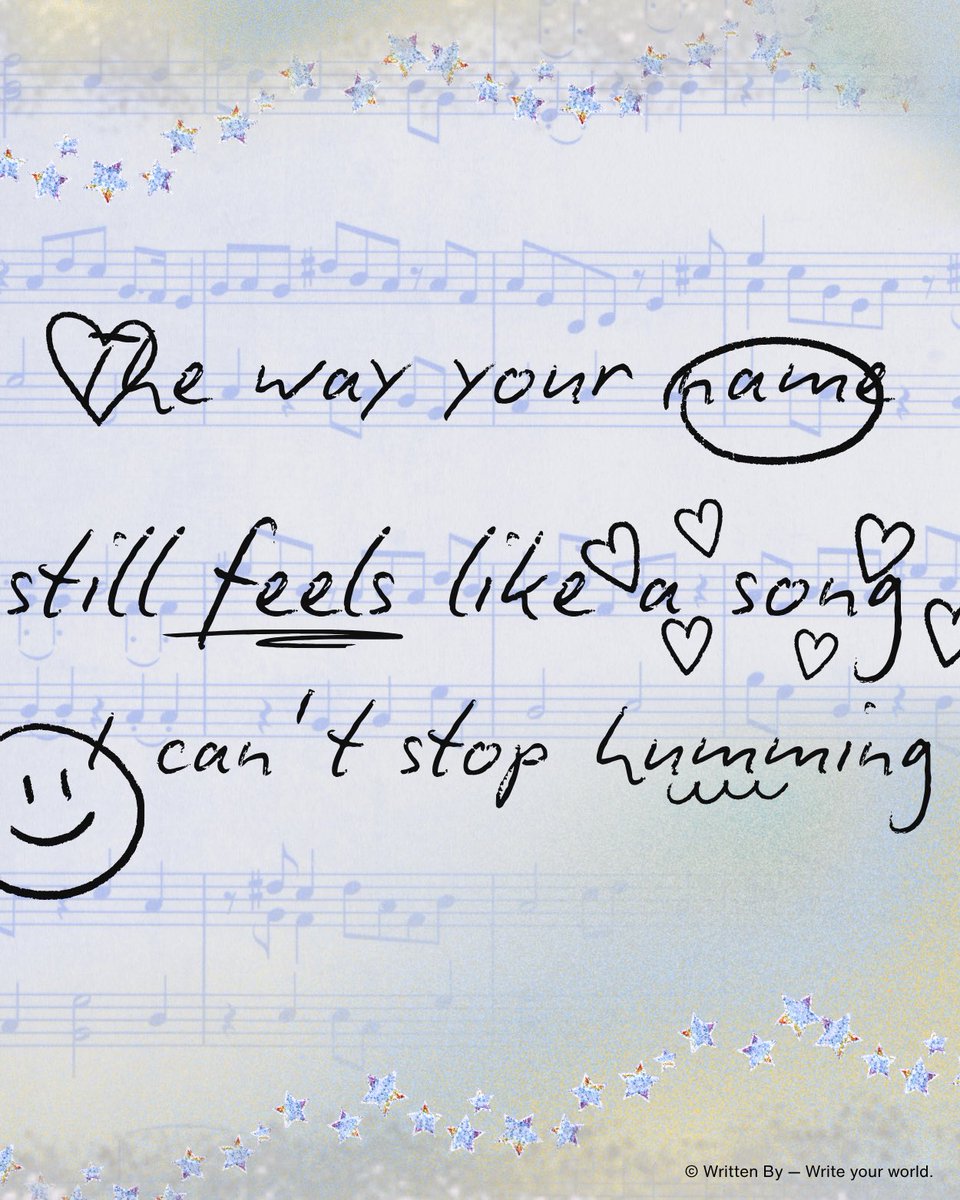 The way your name
still feels like a song
I can't stop humming
© Written By — Write your world.